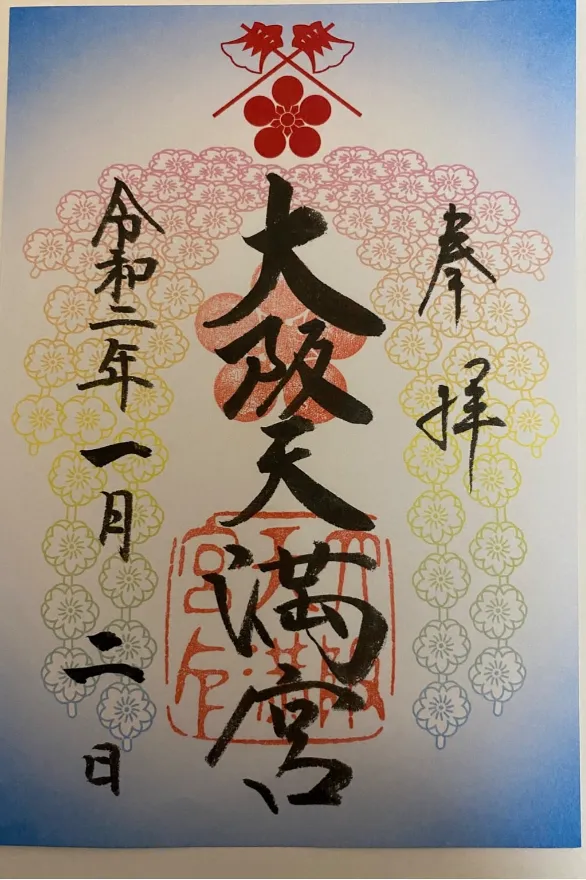 奉拝
大阪天満宮
令和二年一月二日